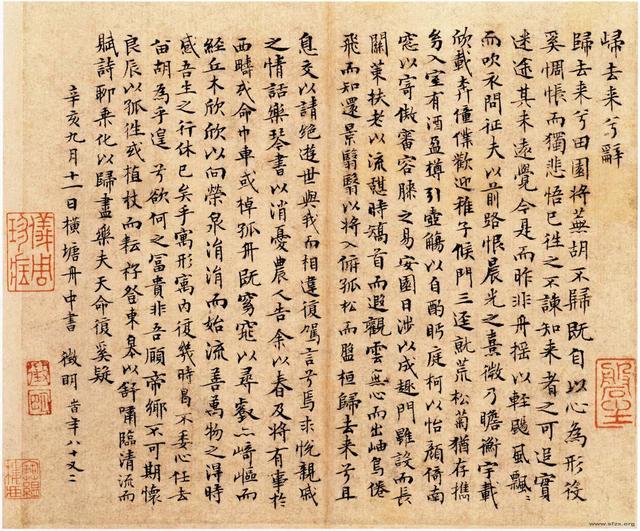 歸去来兮辭
歸去来兮田園將蕪胡不歸既自以心為形役
奚惆悵而獨悲悟已往之不諫知来者之可追實
迷途其未遠覺今是而昨非舟搖搖以輕颺風飄飄
而吹衣問征夫以前路恨晨光之熹微乃瞻衡宇載
欣載奔僮僕歡迎稚子候門三逕就荒松菊猶存攜
幼入室有酒盈樽引壺觴以自酌眄庭柯以怡顏倚南
窓以寄傲審容膝之易安園日涉以成趣門雖設而長
關策扶老以流憩時矯首而遐觀雲無心而出岫鳥倦
飛而知還景翳翳以將入撫孤松而盤桓歸去来兮且
息交以請絕遊世與我而相違復駕言兮焉求悅親戚
之情話樂琴書以消憂農人告余以春及將有事於
西疇或命巾車或棹孤舟既窈窕以尋壑亦崎嶇而
經丘木欣欣以向榮泉涓涓而始流善萬物之得時
感吾生之行休已矣乎寓形寓內復幾時曷不委心任去
留胡為乎遑兮欲何之富貴非吾願帝鄉不可期懷
良辰以孤往或植杖而耘耔登東皋以舒嘯臨清流而
賦詩聊乗化以歸盡樂夫天命復奚疑
辛亥九月十一日橫塘舟中書 徵明 時年八十又二
儀周珍藏
徵明
www.sfzx.org